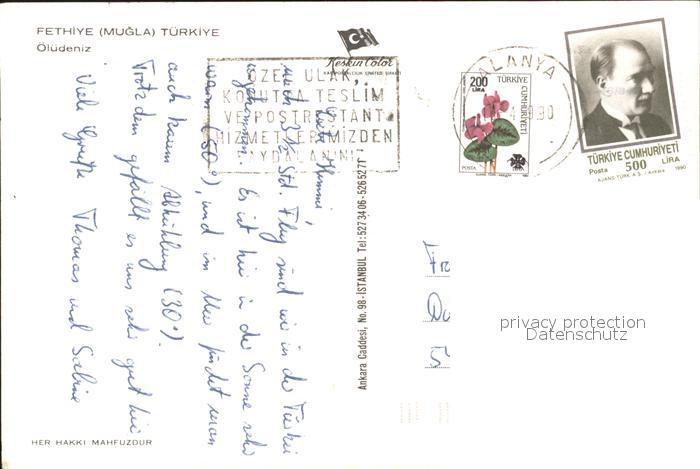 FETHİYE (MUĞLA) TÜRKİYE
Ölüdeniz
Keskin Color
ÖZEL ULAK,
KONUTTA TESLİM
VE POSTRESTANT
HİZMETLERİMİZDEN
YARARLANINIZ
ALANYA
90
200
LİRA
TÜRKİYE
CUMHURİYETİ
POSTA
TÜRKİYE CUMHURİYETİ
Posta 500 LİRA
AJANS-TÜRK A.Ş./Ankara 1990
nach 3 1/2 Std. Flug sind wir in der Türkei
angekommen. Es ist hier in der Sonne sehr
warm (50°), und im Meer findet man
auch kaum Abkühlung (30°).
Trotzdem gefällt es uns sehr gut hier
Viele Grüße Thomas und Sabine
Ankara Caddesi, No. 98-İSTANBUL Tel: 527 3406-5265271
privacy protection
Datenschutz
HER HAKKI MAHFUZDUR